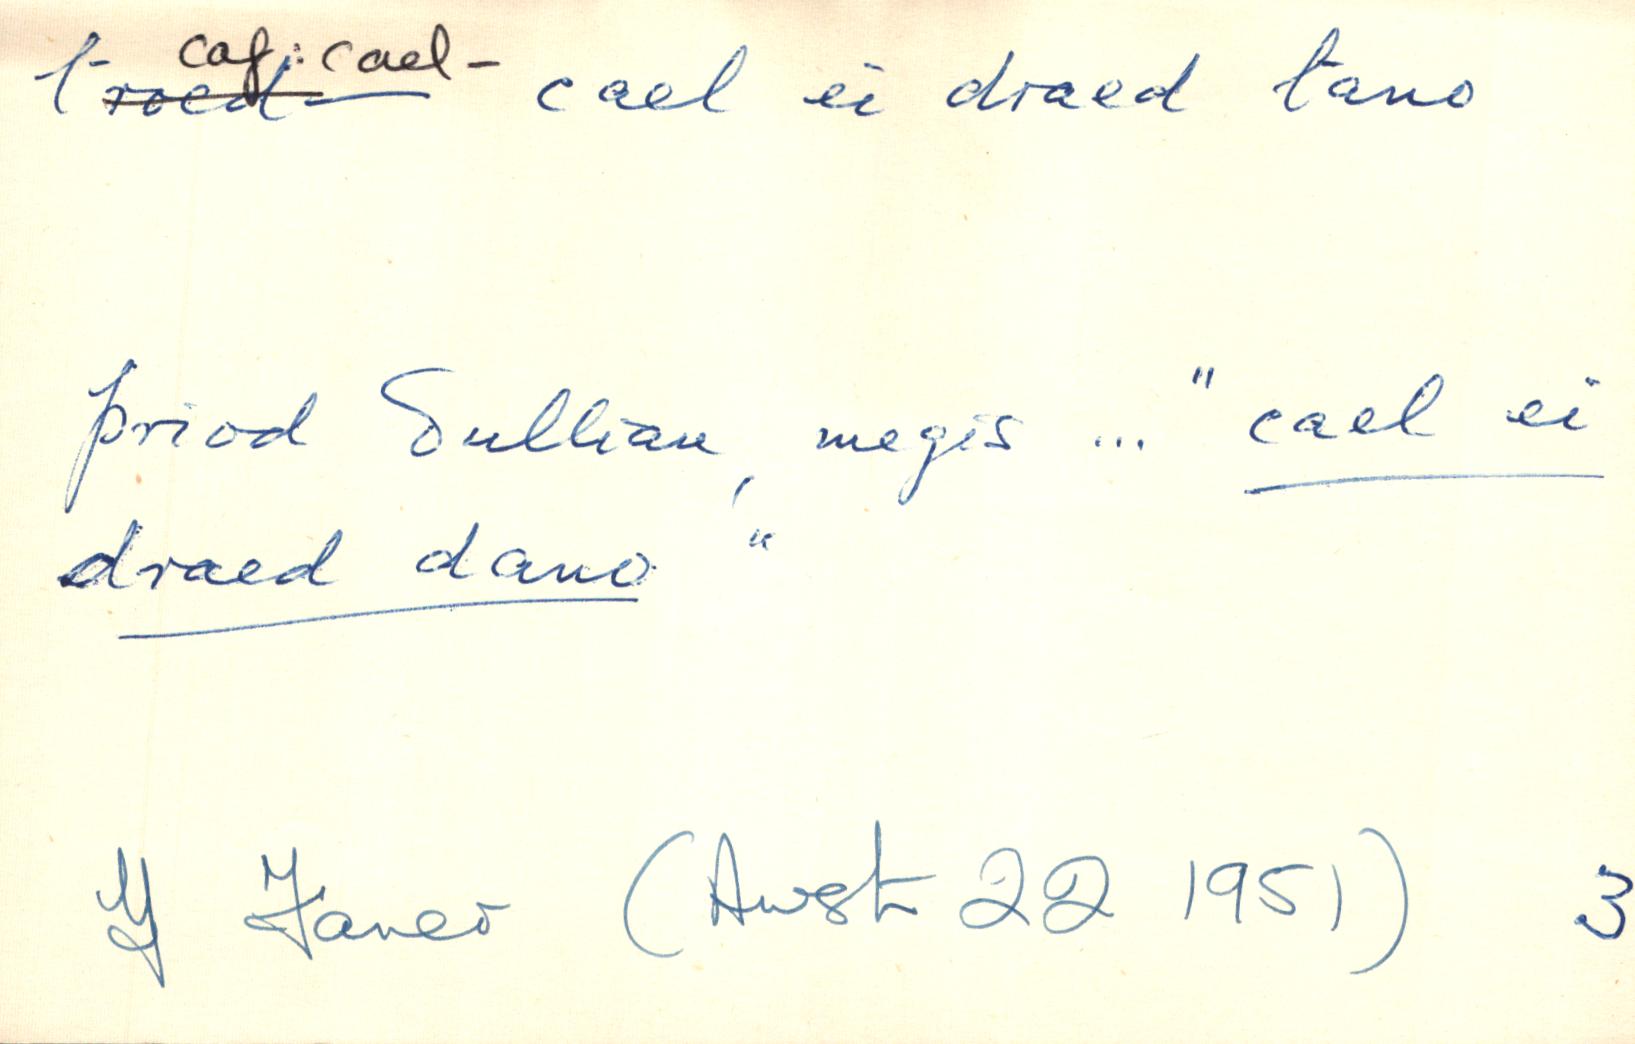 caf: cael-
troed cael ei draed tano
priod Sullian, megis ... "cael ei
draed dano"
Y Faner (Awst 22 1951) 3